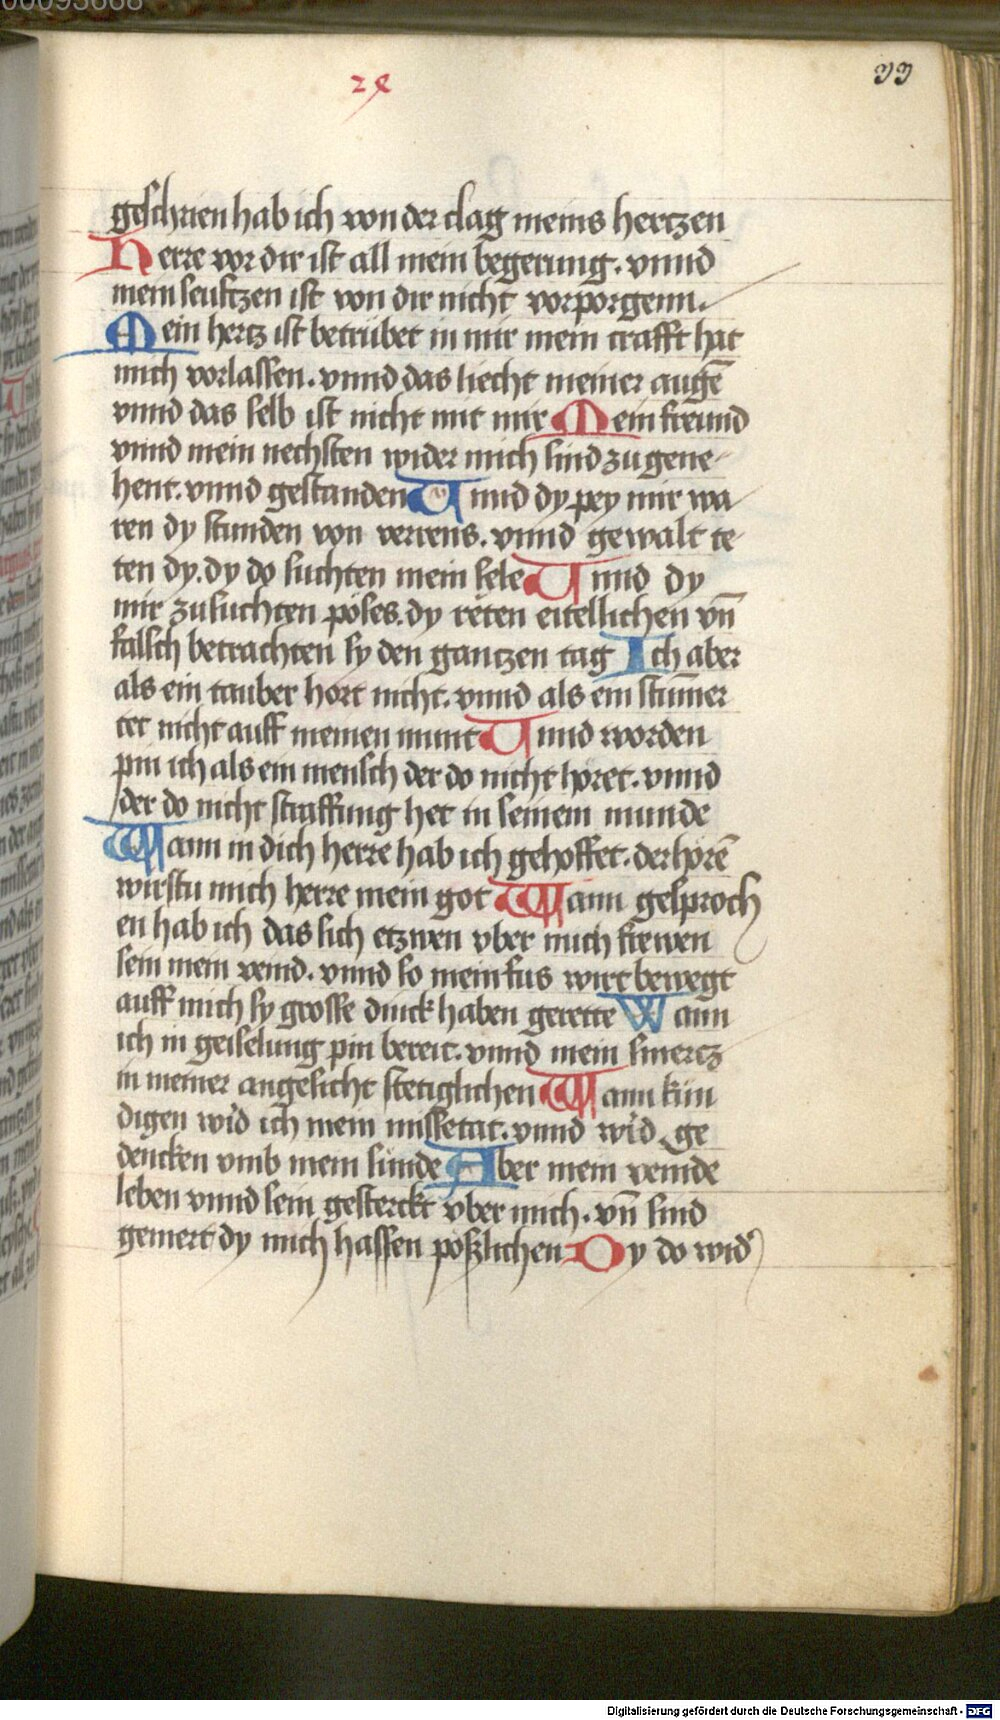 00093668
2x
33
geschrien hab ich von der clag meins hertzen
Herre vor dir ist all mein begerung. vnnd
mein seufftzen ist von dir nicht vorporgenn.
Mein hertz ist betrübet in mir mein crafft hat
mich vorlassen. vnnd das liecht meiner augē
vnnd das selb ist nicht mit mir Mein freund
vnnd mein nechsten wider mich sind zu gene-
hent. vnnd gestanden Vnnd dy pey mir wa
ren dy stunden von verrens. vnnd gewalt te-
ten dy. dy do suchten mein sele Vnnd dy
mir zusuchten pöses. dy reten eitellichen vn̄
falsch betrachten sy den gantzen tag Ich aber
als ein tauber hort nicht. vnnd als ein stum̄er
tet nicht auff meinen munt Vnnd worden
pin ich als ein mensch der do nicht höret. vnnd
der do nicht straffung het in seinem munde
Wann in dich herre hab ich gehoffet. derhörē
wirstu mich herre mein got Wann gesproch
en hab ich das sich etzwen vber mich frewen
sein mein veind. vnnd so mein fus wirt bewegt
auff mich sy grosse dinck haben gerette Wann
ich in geiselung pin bereit. vnnd mein smertz
in meiner angesicht stetiglichen Wann kün
digen wid ich mein missetat. vnnd wid ge
dencken vmb mein sünde Aber mein veinde
leben vnnd sein gesterckt vber mich. vn̄ sind
gemert dy mich hassen pößlichen Dy do wid
Digitalisierung gefördert durch die Deutsche Forschungsgemeinschaft - DFG